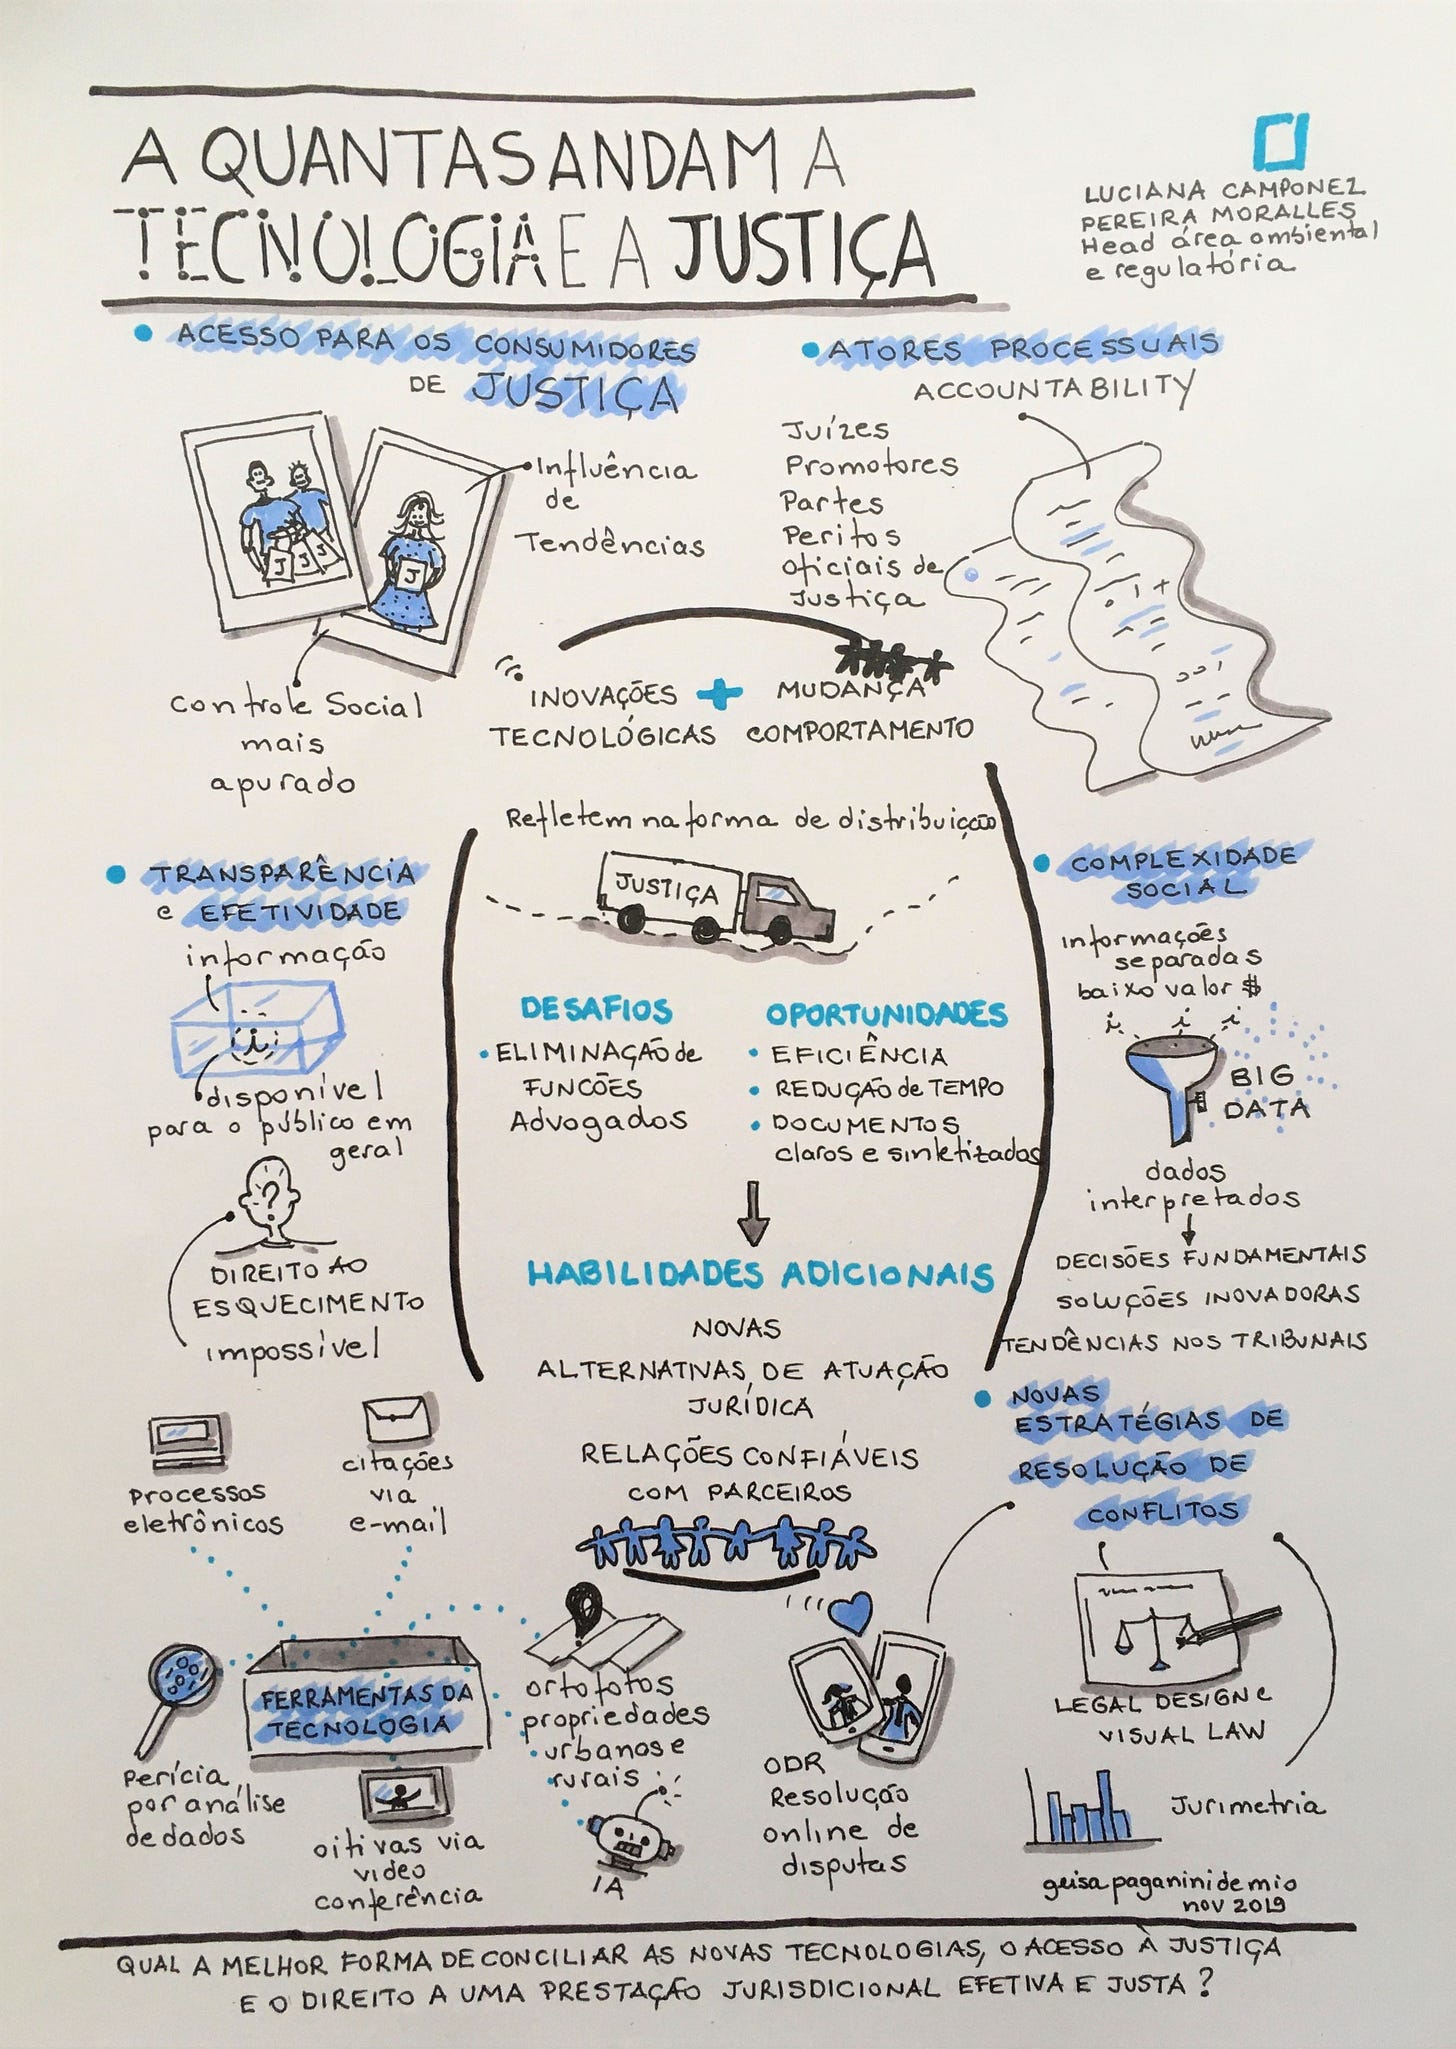 A QUANTAS ANDAM A
TECNOLOGIA E A JUSTIÇA
LUCIANA CAMPONEZ
PEREIRA MORALLES
Head área ambiental
e regulatória
ACESSO PARA OS CONSUMIDORES
DE JUSTIÇA
Influência
de
Tendências
J
J
J
J
Controle Social
mais
apurado
ATORES PROCESSUAIS
ACCOUNTABILITY
Juízes
Promotores
Partes
Peritos
Oficiais de
Justiça
INOVAÇÕES + MUDANÇA
TECNOLÓGICAS COMPORTAMENTO
Refletem na forma de distribuição
JUSTIÇA
DESAFIOS
• ELIMINAÇÃO de
FUNCÕES
Advogados
OPORTUNIDADES
• EFICIÊNCIA
• REDUÇÃO de TEMPO
• DOCUMENTOS
claros e sintetizados
HABILIDADES ADICIONAIS
NOVAS
ALTERNATIVAS DE ATUAÇÃO
JURÍDICA
RELAÇÕES CONFIÁVEIS
COM PARCEIROS
TRANSPARÊNCIA
e EFETIVIDADE
informação
i
disponível
para o público em
geral
?
DIREITO AO
ESQUECIMENTO
impossível
COMPLEXIDADE
SOCIAL
Informações
separadas
baixo valor $
i i i
BIG
DATA
dados
interpretados
DECISÕES FUNDAMENTAIS
SOLUÇÕES INOVADORAS
TENDÊNCIAS NOS TRIBUNAIS
NOVAS
ESTRATÉGIAS DE
RESOLUÇÃO DE
CONFLITOS
LEGAL DESIGN e
VISUAL LAW
Jurimetria
ODR
Resolução
online de
disputas
processos
eletrônicos
citações
via
e-mail
FERRAMENTAS DA
TECNOLOGIA
Perícia
por análise
de dados
oitivas via
video
conferência
ortofotos
propriedades
urbanos e
rurais
IA
geisa paganini de mio
nov 2019
QUAL A MELHOR FORMA DE CONCILIAR AS NOVAS TECNOLOGIAS, O ACESSO À JUSTIÇA
E O DIREITO A UMA PRESTAÇÃO JURISDICIONAL EFETIVA E JUSTA ?